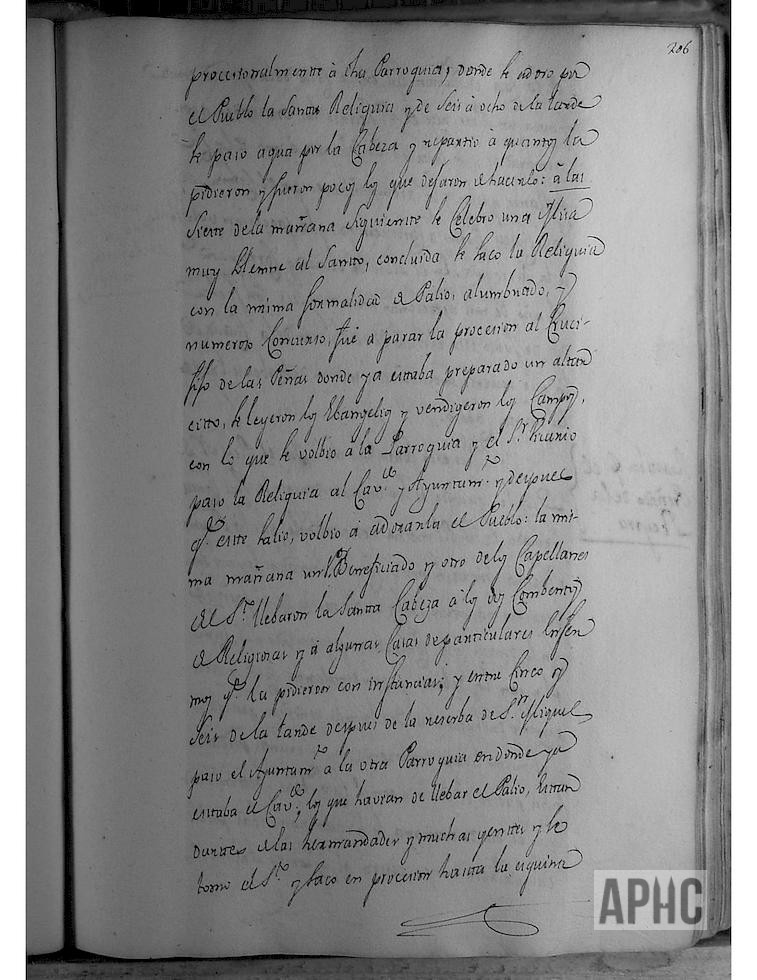 206
procesionalmente à dha Parroquia, donde se adoro por
el Pueblo la Santa Reliquia y de seis à ocho de la tarde
se paso agua por la Cabeza y repartio à quantos la
pidieron y fueron pocos los que dejaron de hacerlo: à las
siete de la mañana siguiente se Celebro una Misa
muy solemne al Santo, concluida se saco la Reliquia
con la misma formalidad de Palio, alumbrado, y
numeroso Concurso, fué a parar la procesion al Cruci-
fijo de las Peñas donde ya estaba preparado un altar
cito, se leyeron los Ebangelios y vendigeron los Campos,
con lo que se volbio a la Parroquia y el Sr.
paso la Reliquia al Cavdo. y Ayuntamto. y despues
qe. este salio, volbio à adorarla el Pueblo: la mis-
ma mañana un Beneficiado y otro de los Capellanes
del Sto. llebaron la Santa Cabeza à los dos Combentos
de Religiosas y à algunas Casas de particulares enfer
mos qe. la pidieron con instancias; y entre cinco y
seis de la tarde despues de la reserba de Sn. Miguel
paso el Ayuntamto. à la otra Parroquia en donde ya
estaba el Cavdo., los que havian de llebar el Palio, Estan
dartes de las hermandades y muchas gentes y se
tomo el Sto. y saco en procesion hasta la esquina
APHC